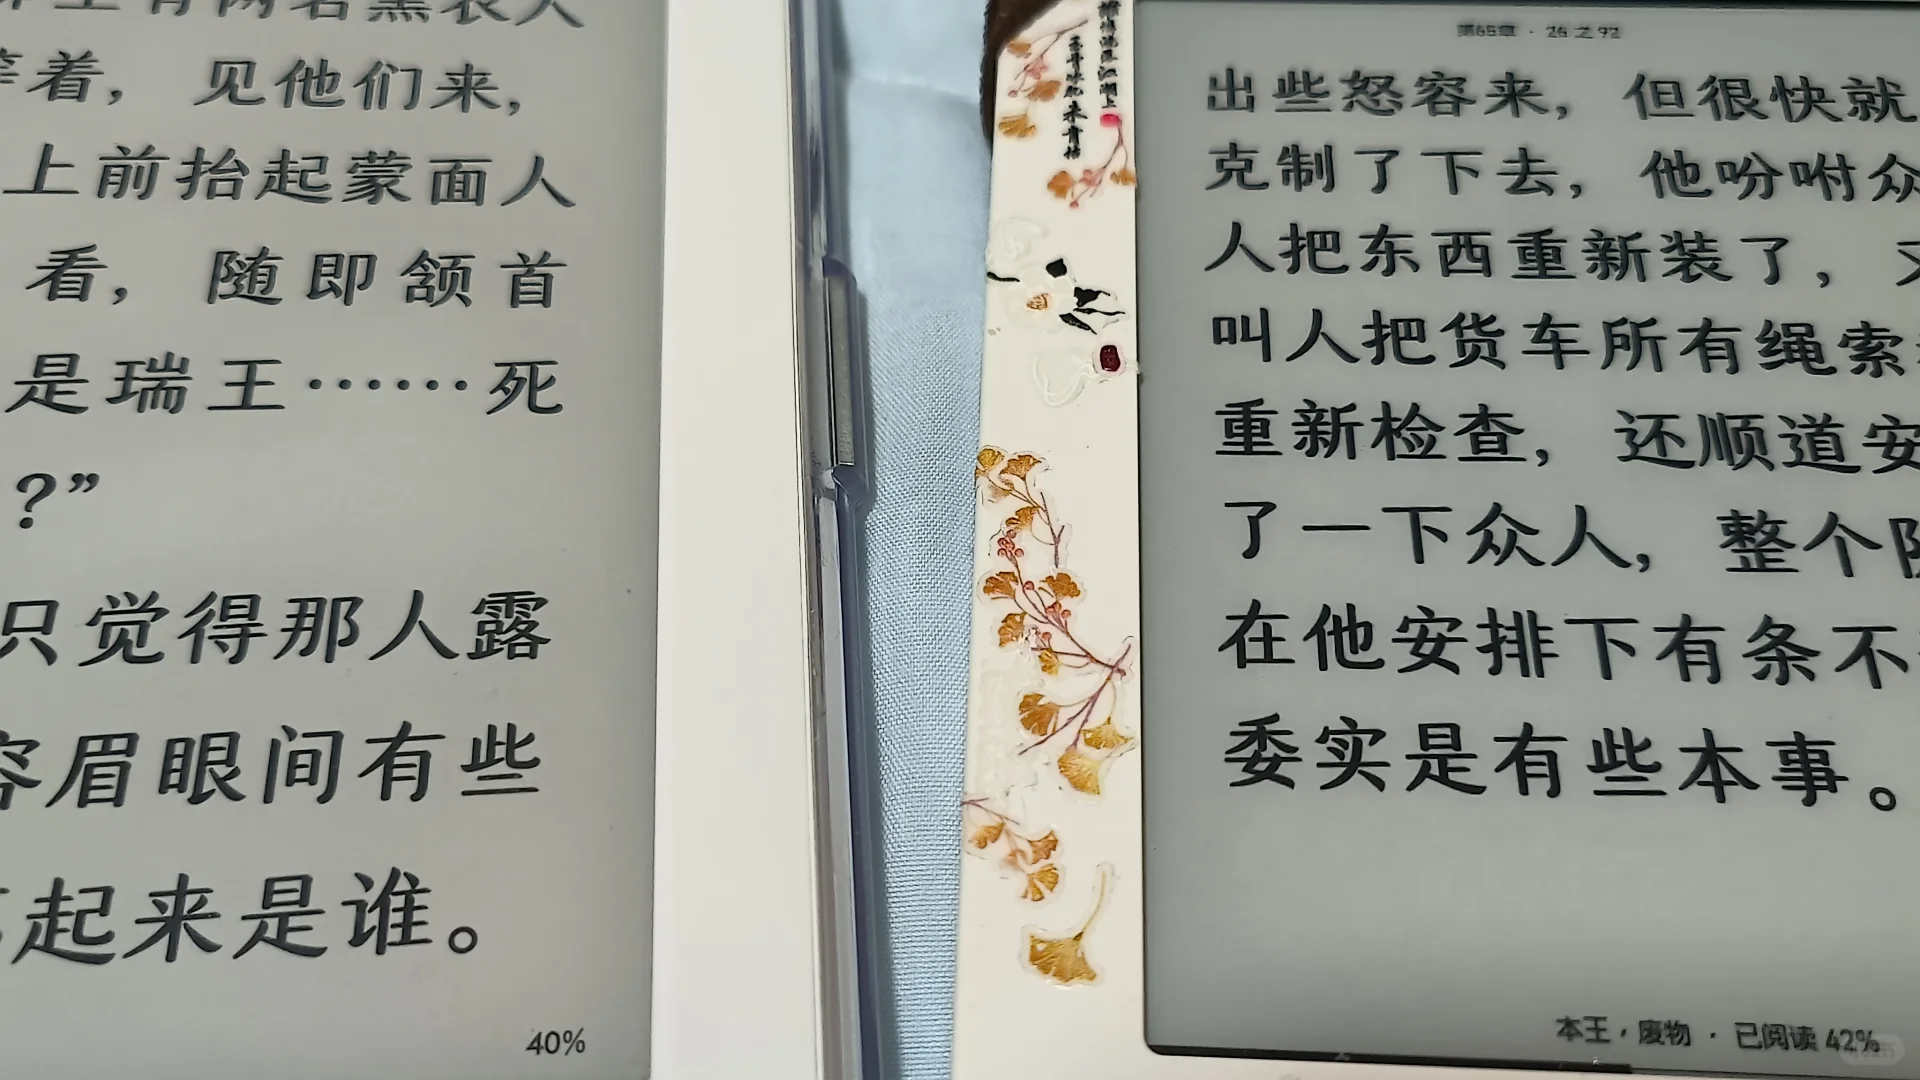 有两名黑衣人
等着，见他们来，
上前抬起蒙面人
看，随即颔首
是瑞王……死
？”
只觉得那人露
容眉眼间有些
起来是谁。
40%
第65章 · 26 之 92
出些怒容来，但很快就
克制了下去，他吩咐众
人把东西重新装了，又
叫人把货车所有绳索
重新检查，还顺道安
了一下众人，整个队
在他安排下有条不
委实是有些本事。
本王，废物 · 已阅读 42%